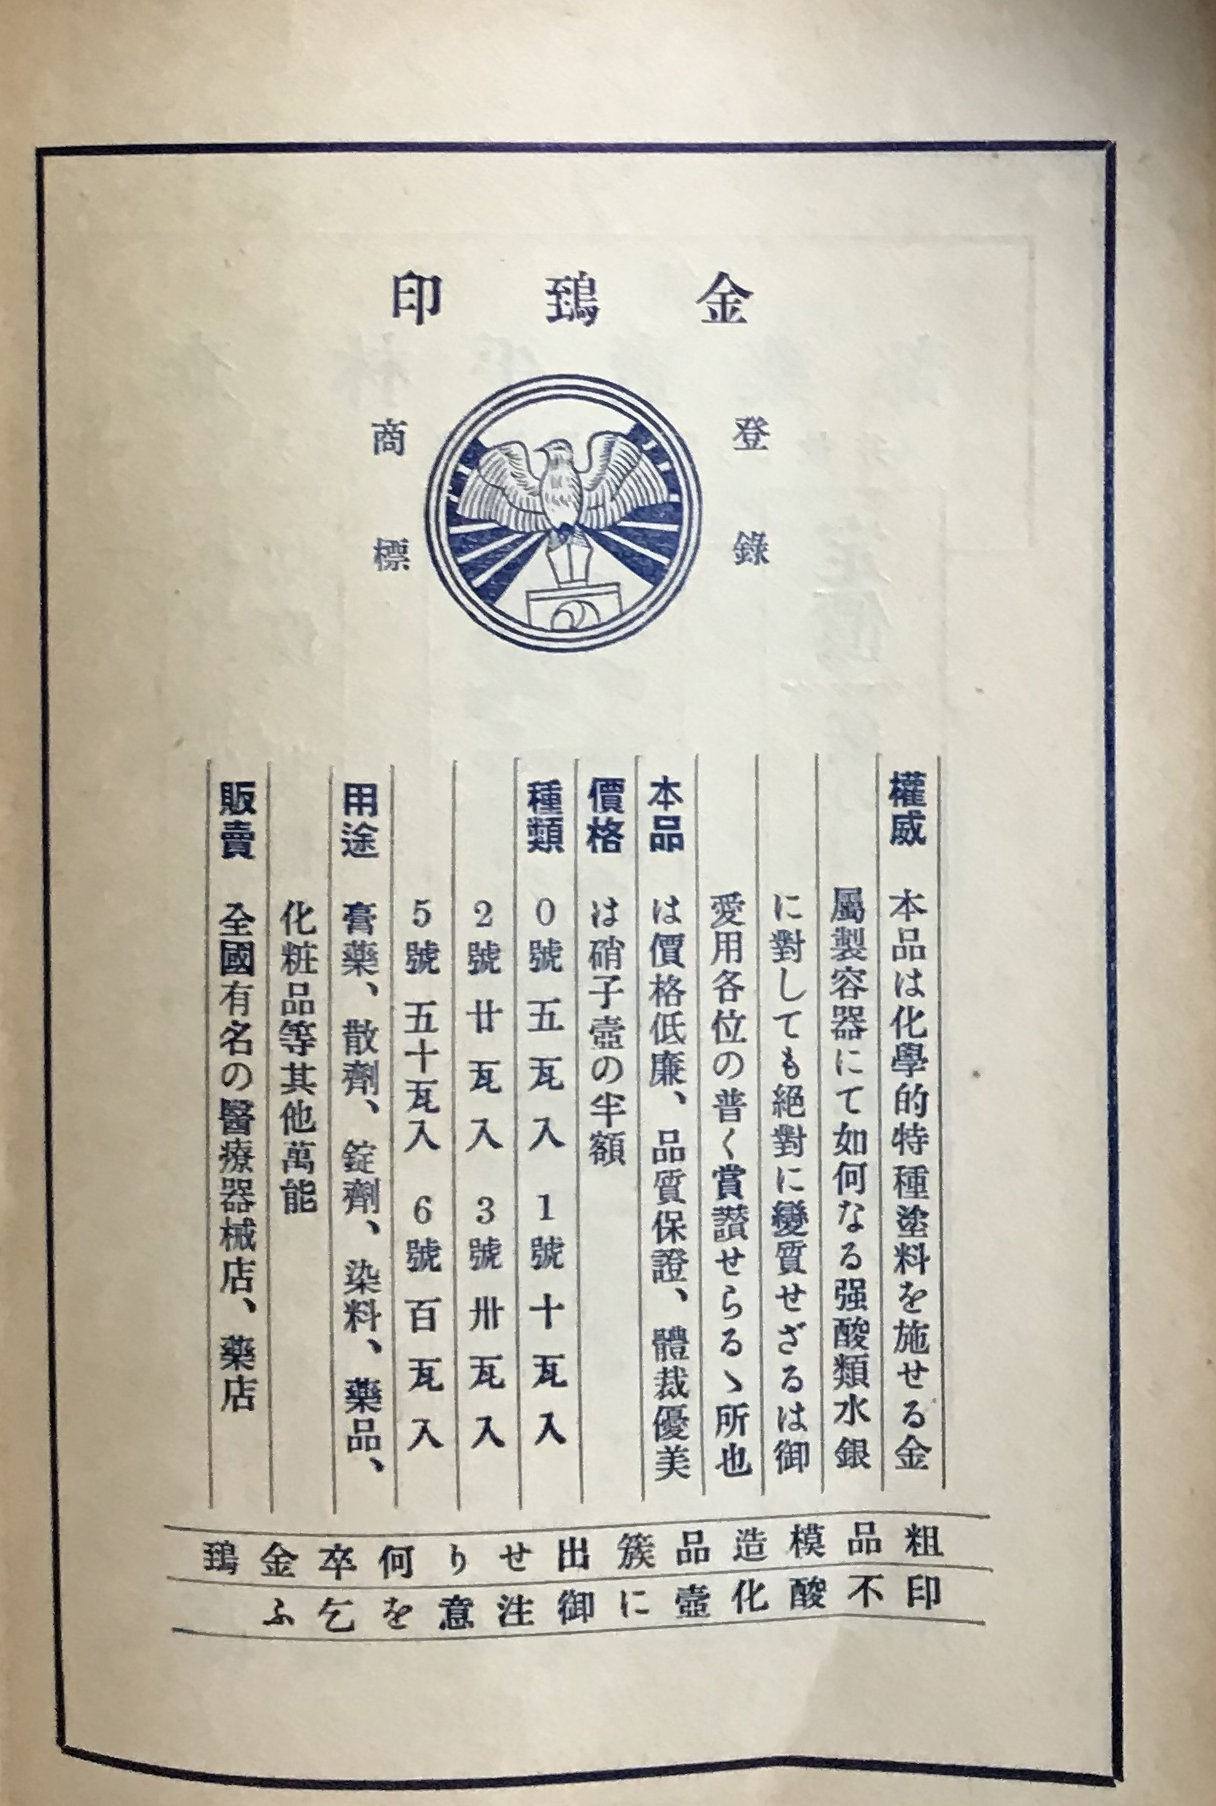 金鵄印
登錄
商標
權威　本品は化學的特種塗料を施せる金
屬製容器にて如何なる强酸類水銀
に對しても絕對に變質せざるは御
愛用各位の普く賞讃せらるゝ所也
本品は價格低廉、品質保證、體裁優美
價格は硝子壺の半額
種類　0號五瓦入　1號十瓦入
2號廿瓦入　3號卅瓦入
5號五十瓦入　6號百瓦入
用途　膏藥、散劑、錠劑、染料、藥品、
化粧品等其他萬能
販賣　全國有名の醫療器械店、藥店
粗品模造品簇出せり何卒金鵄
印不酸化壺に御注意を乞ふ